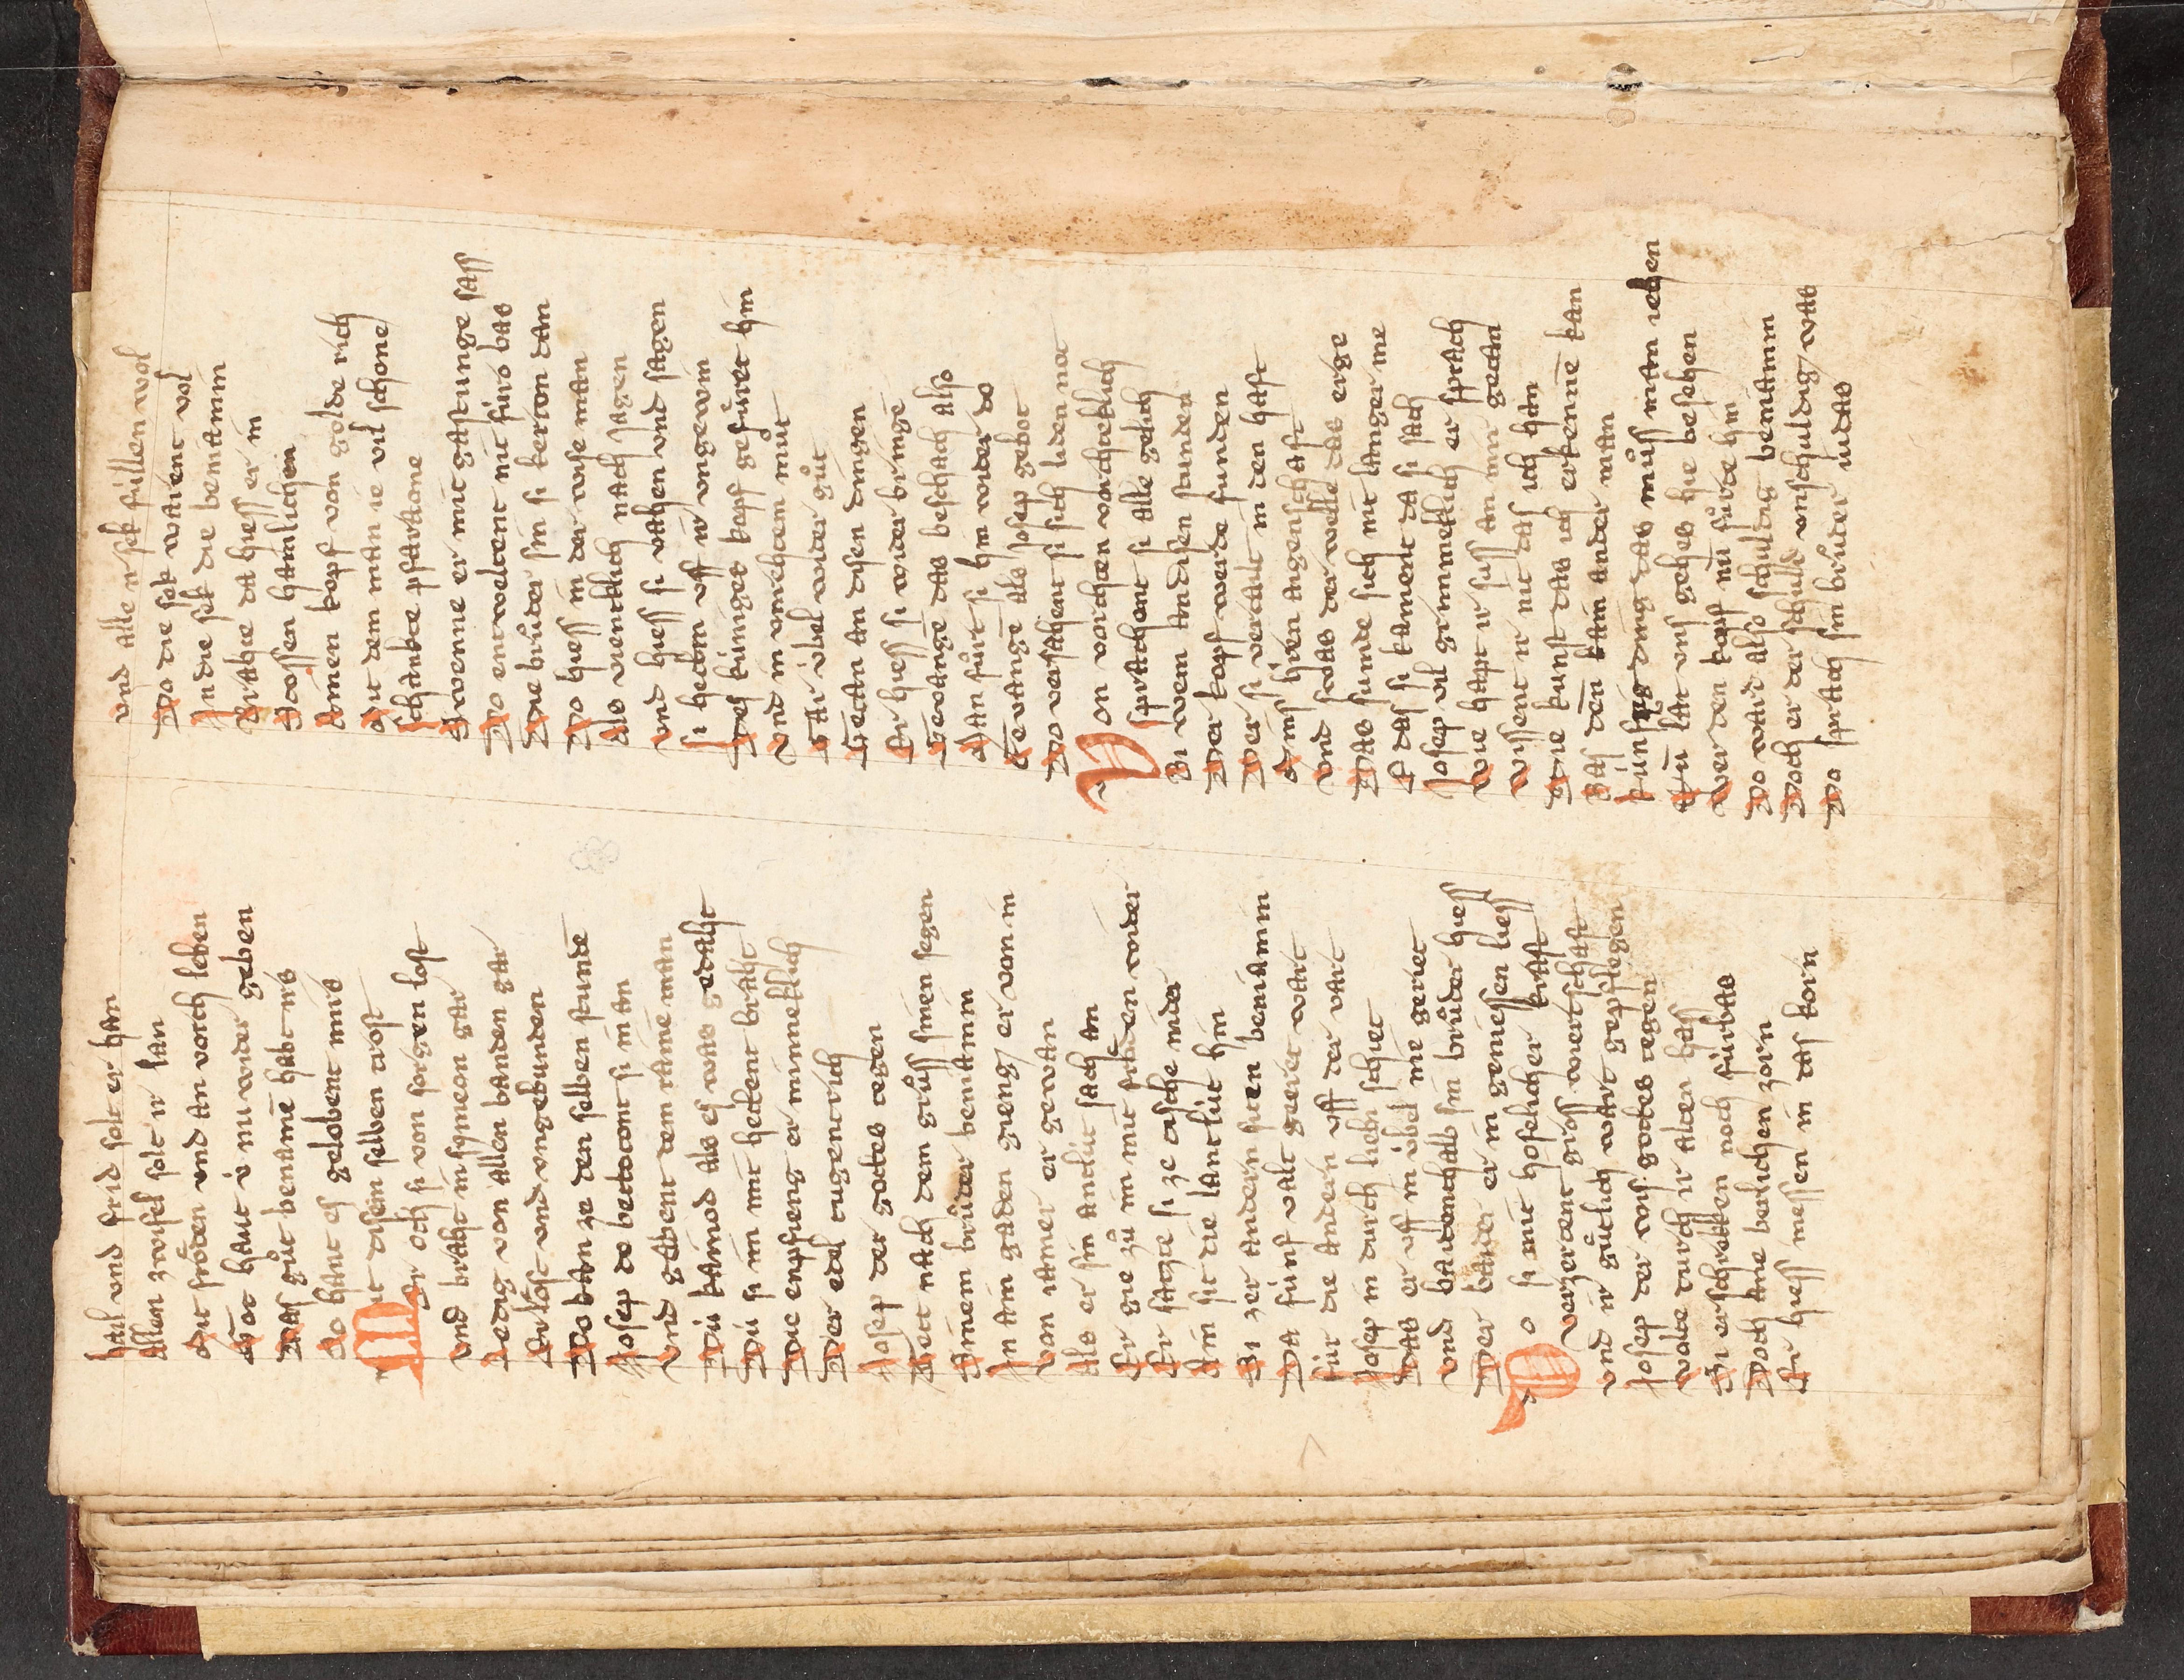 hail vnd frid solt er han
Allen zwifel solt ir lan
Mit fröden vnd an vorch leben
Got haut ú nu wider geben
Was gůt benamē habt irs
Do hant es gelobent mirs
Mit disem selben trost
Er och si von sorgen lost
Vnd braht in symeon gar
Ledig von allen banden gar
Erlöst vnd vngebunden
Do kan ze den selben stundē
Josep do bettotont si in an
Vnd gabent dem ramē man
Dú kainod als es was gedaht
Dú si im mit hettent braht
Die enpfieng er minneklich
Der edel tugentrich
Josep der gottes tegen
Bett nach dem grůss sinen segen
Sinem brůder beniamin
In ain gaden gieng er von in
Von iamer er gewan
Als er sin antlút sach an
Er gie zů im mit sitten wider
Er satzte si ze tische nider
Ain sit die lantlút hin
Si zer andern siten beniamin
Da fúnf valt geeret wart
Fúr die andern vff der vart
Josep in durch liebi schiet
Das er vff in úbel nie geriet
Vnd baidenthalb sin brůder hiess
Der baider er in geniessen liess
Do si mit hofelicher kraft
Verzertent gross wertschaft
Vnd ir gůtlich wart gepflegen
Josep der wis gottes tegen
Wolte durch ir alten hass
Si erschrekken noch fúrbas
Doch ane berlichen zorn
Er hiess messen in das korn
Vnd alle ir sek fúllen wol
Do die sek warent vol
In die sek die beniamin
Brahte da hiess er in
Stossen hainlichen
Ainen kopf von golde rich
Mit dem man ie vil schone
Schankte pharaone
Swenne er mit gastunge sass
Do enwoltent nit fúro bas
Die brůder sin si kerton dan
Do hiess in der wise man
Als vientlich nach iagen
Vnd hiess si vahen vnd sagen
Si hetton vff ir vngewin
Des kúniges kopf gefůret hin
Vnd in vnrehtem můt
Gar úbel wider gůt
Getan an disen dingen
Er hiess si wider bringē
Gevangē das beschach also
Man fůrt si hin wider do
Gevangē als Josep gebot
Do versahent si sich liden not
Von vorhten vorhteklich
Sprachent si alle gelich
Bi wem an disen stunden
Der kopf werde funden
Der si vertailt in den haft
Ains hiren aigenschaft
Vnd swas der welle das erge
Das sumde sich nit langer me
E das si kament da si sach
Josep vil grimmeklich er sprach
Wie hapt ir suss an mir getan
Wissent ir nit das ich han
Die kunst das ich erkenne kan
Bas den kain ander man
Kúnftig ding das můss man iehen
Nu lan vns gehes hie besehen
Wer den kopf nu fůrte hin
Do ward also schuldig beniamin
Doch er der schuld vnschuldig was
Do sprach sin brůder iudas